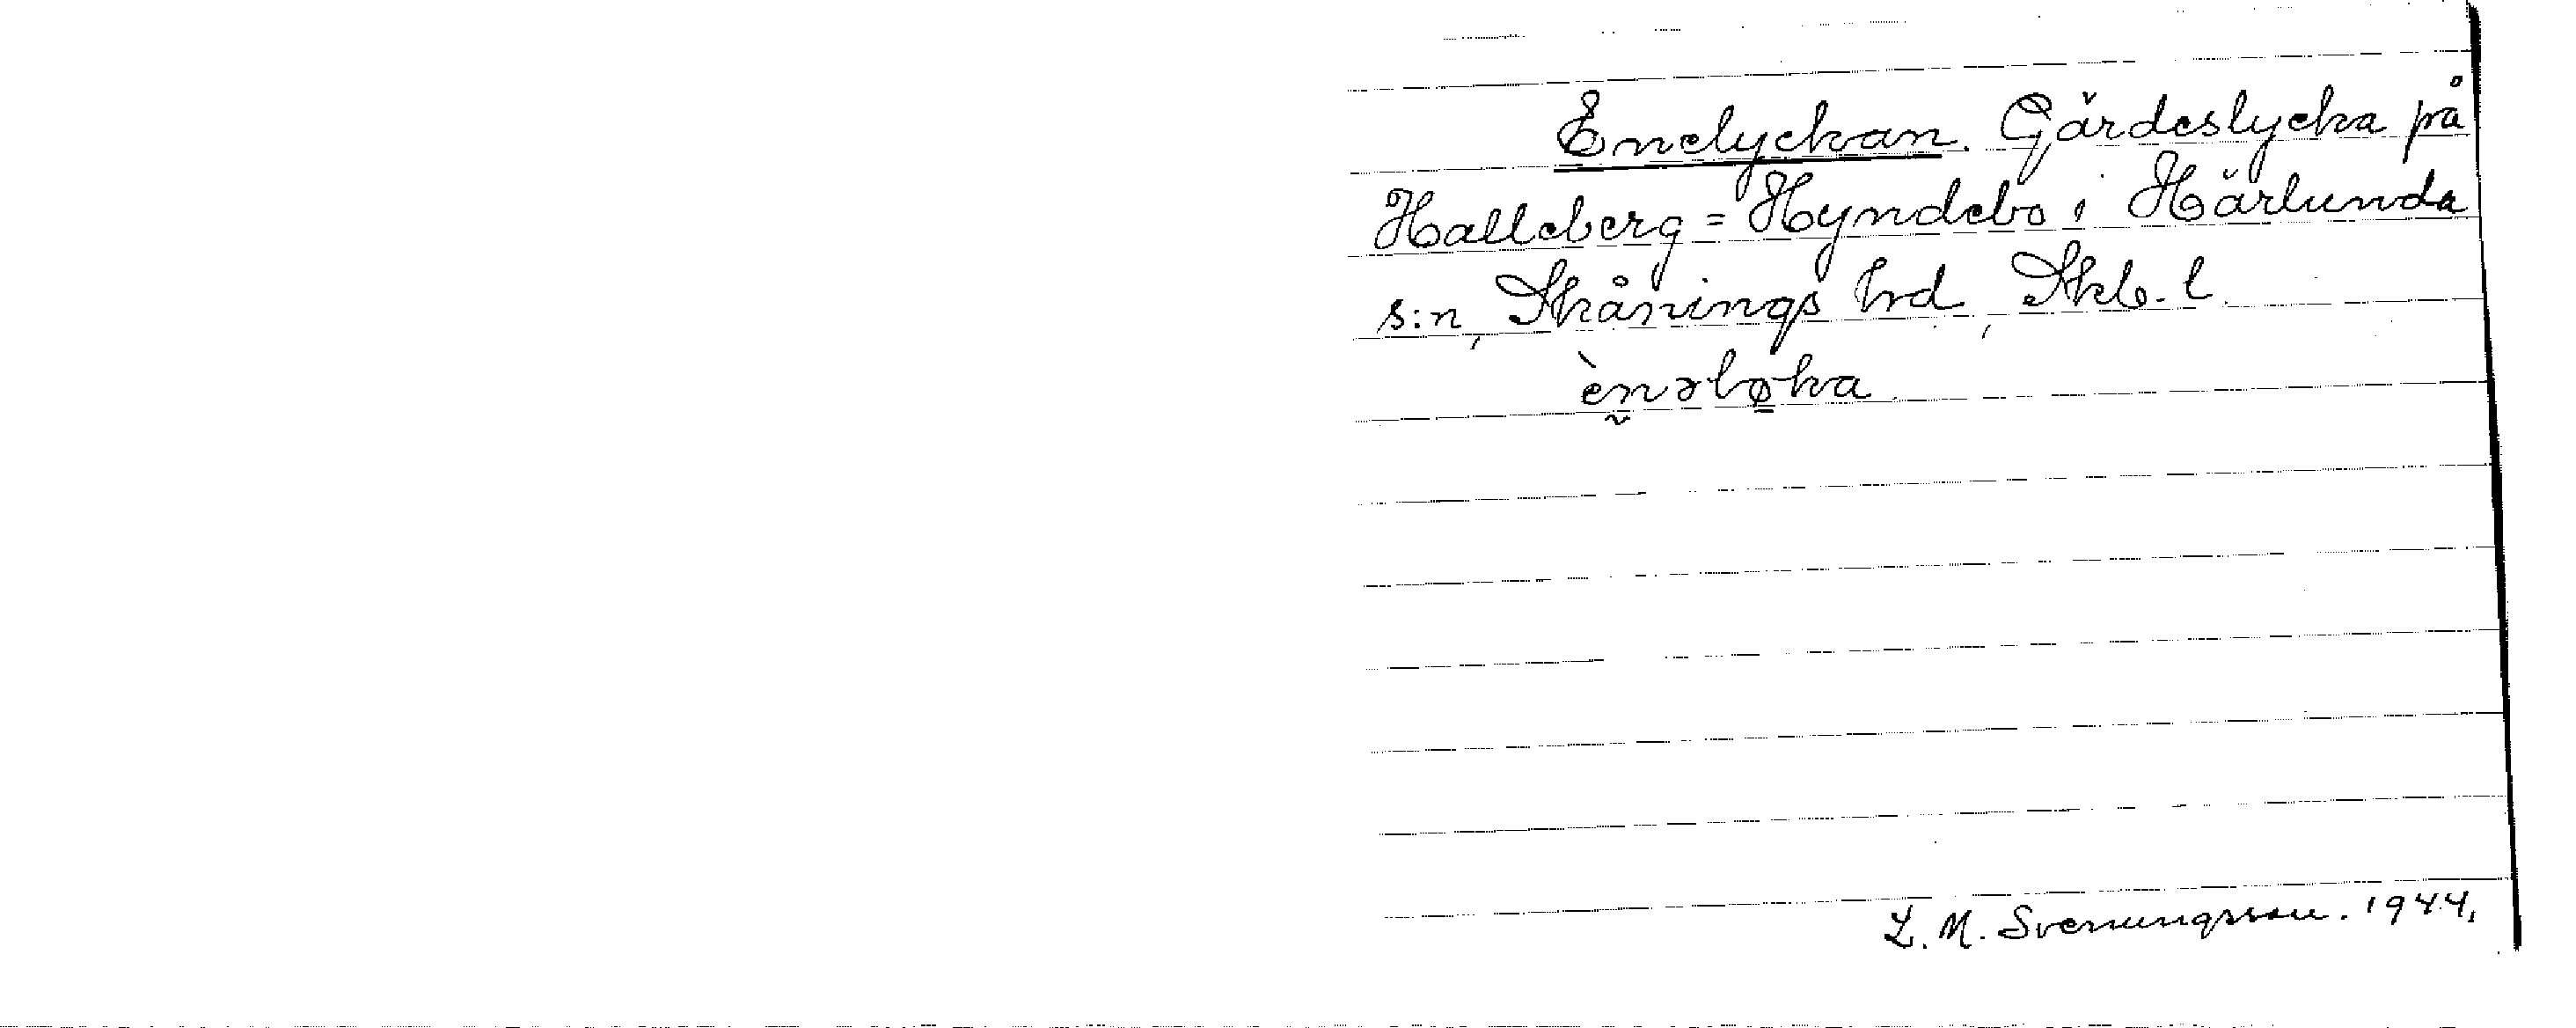 Enelyckan. Gärdeslycka på
Halleberg = Hyndebo i Härlunda
s:n, Skånings hrd, Skb. l
ènəlø̠ka
L. M. Svenungsson. 1944.